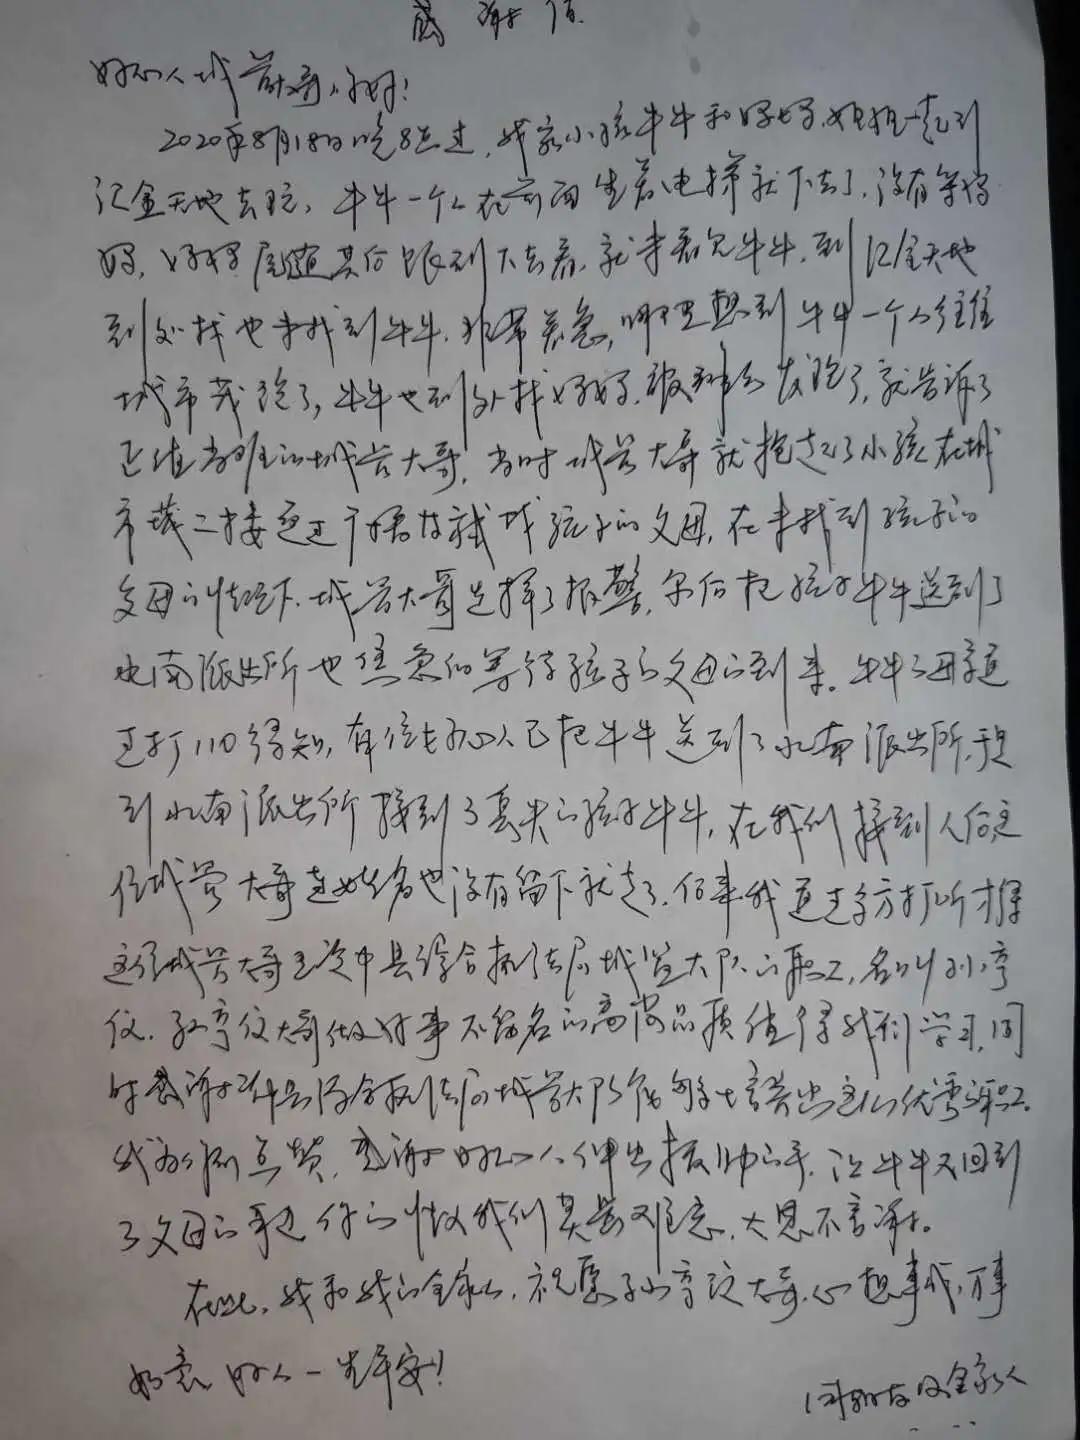 感谢信
好心人城管大哥,你好!
2020年8月18日晚8点过,我家小孩牛牛和妈妈、姐姐一起到
汇金天地去玩,牛牛一个人在前面坐着电梯就下去了,没有等妈
妈,妈妈尾随其后跟到下去看,就未看见牛牛,到汇金天地
到处找也未找到牛牛,非常着急,哪里想到牛牛一个人往
城市跑了,牛牛也到处找妈妈,被好心发现了,就告诉了
正值当班的城管大哥,当时城管大哥就抱起了小孩在城
市寻找孩子的父母,在未找到孩子的
父母的情况下,城管大哥选择了报警,尔后把孩子牛牛送到了
水南派出所也焦急的等待孩子的父母的到来。牛牛的母亲通
过打110得知,有位好心人已把牛牛送到了水南派出所,
到水南派出所接到了丢失的孩子牛牛,在我们接到人后这
位城管大哥连姓名也没有留下就走了,后来我通过多方打听才得
这位城管大哥是资中县综合执法局城监大队的职工,名叫孙亨
仪。孙亨仪大哥做好事不留名的高尚品质值得我们学习,同
时感谢资中县综合执法局城管大队能够培养出这么优秀的职工。
我为你们点赞,感谢好心人伸出援助的手,让牛牛又回到
了父母的身边,你的情义我们莫齿难忘,大恩不言谢。
在此,我和我的全家人,祝愿孙亨仪大哥,心想事成,万事
如意,好人一生平安!
及全家人